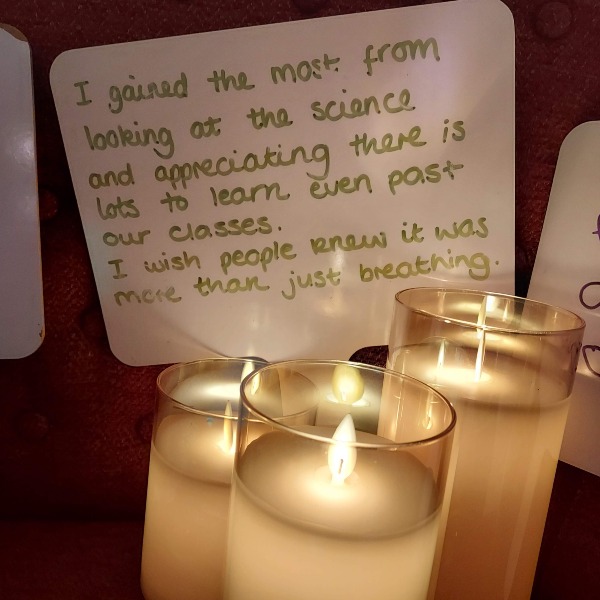 I gained the most from
looking at the science
and appreciating there is
lots to learn even past
our classes.
I wish people knew it was
more than just breathing.